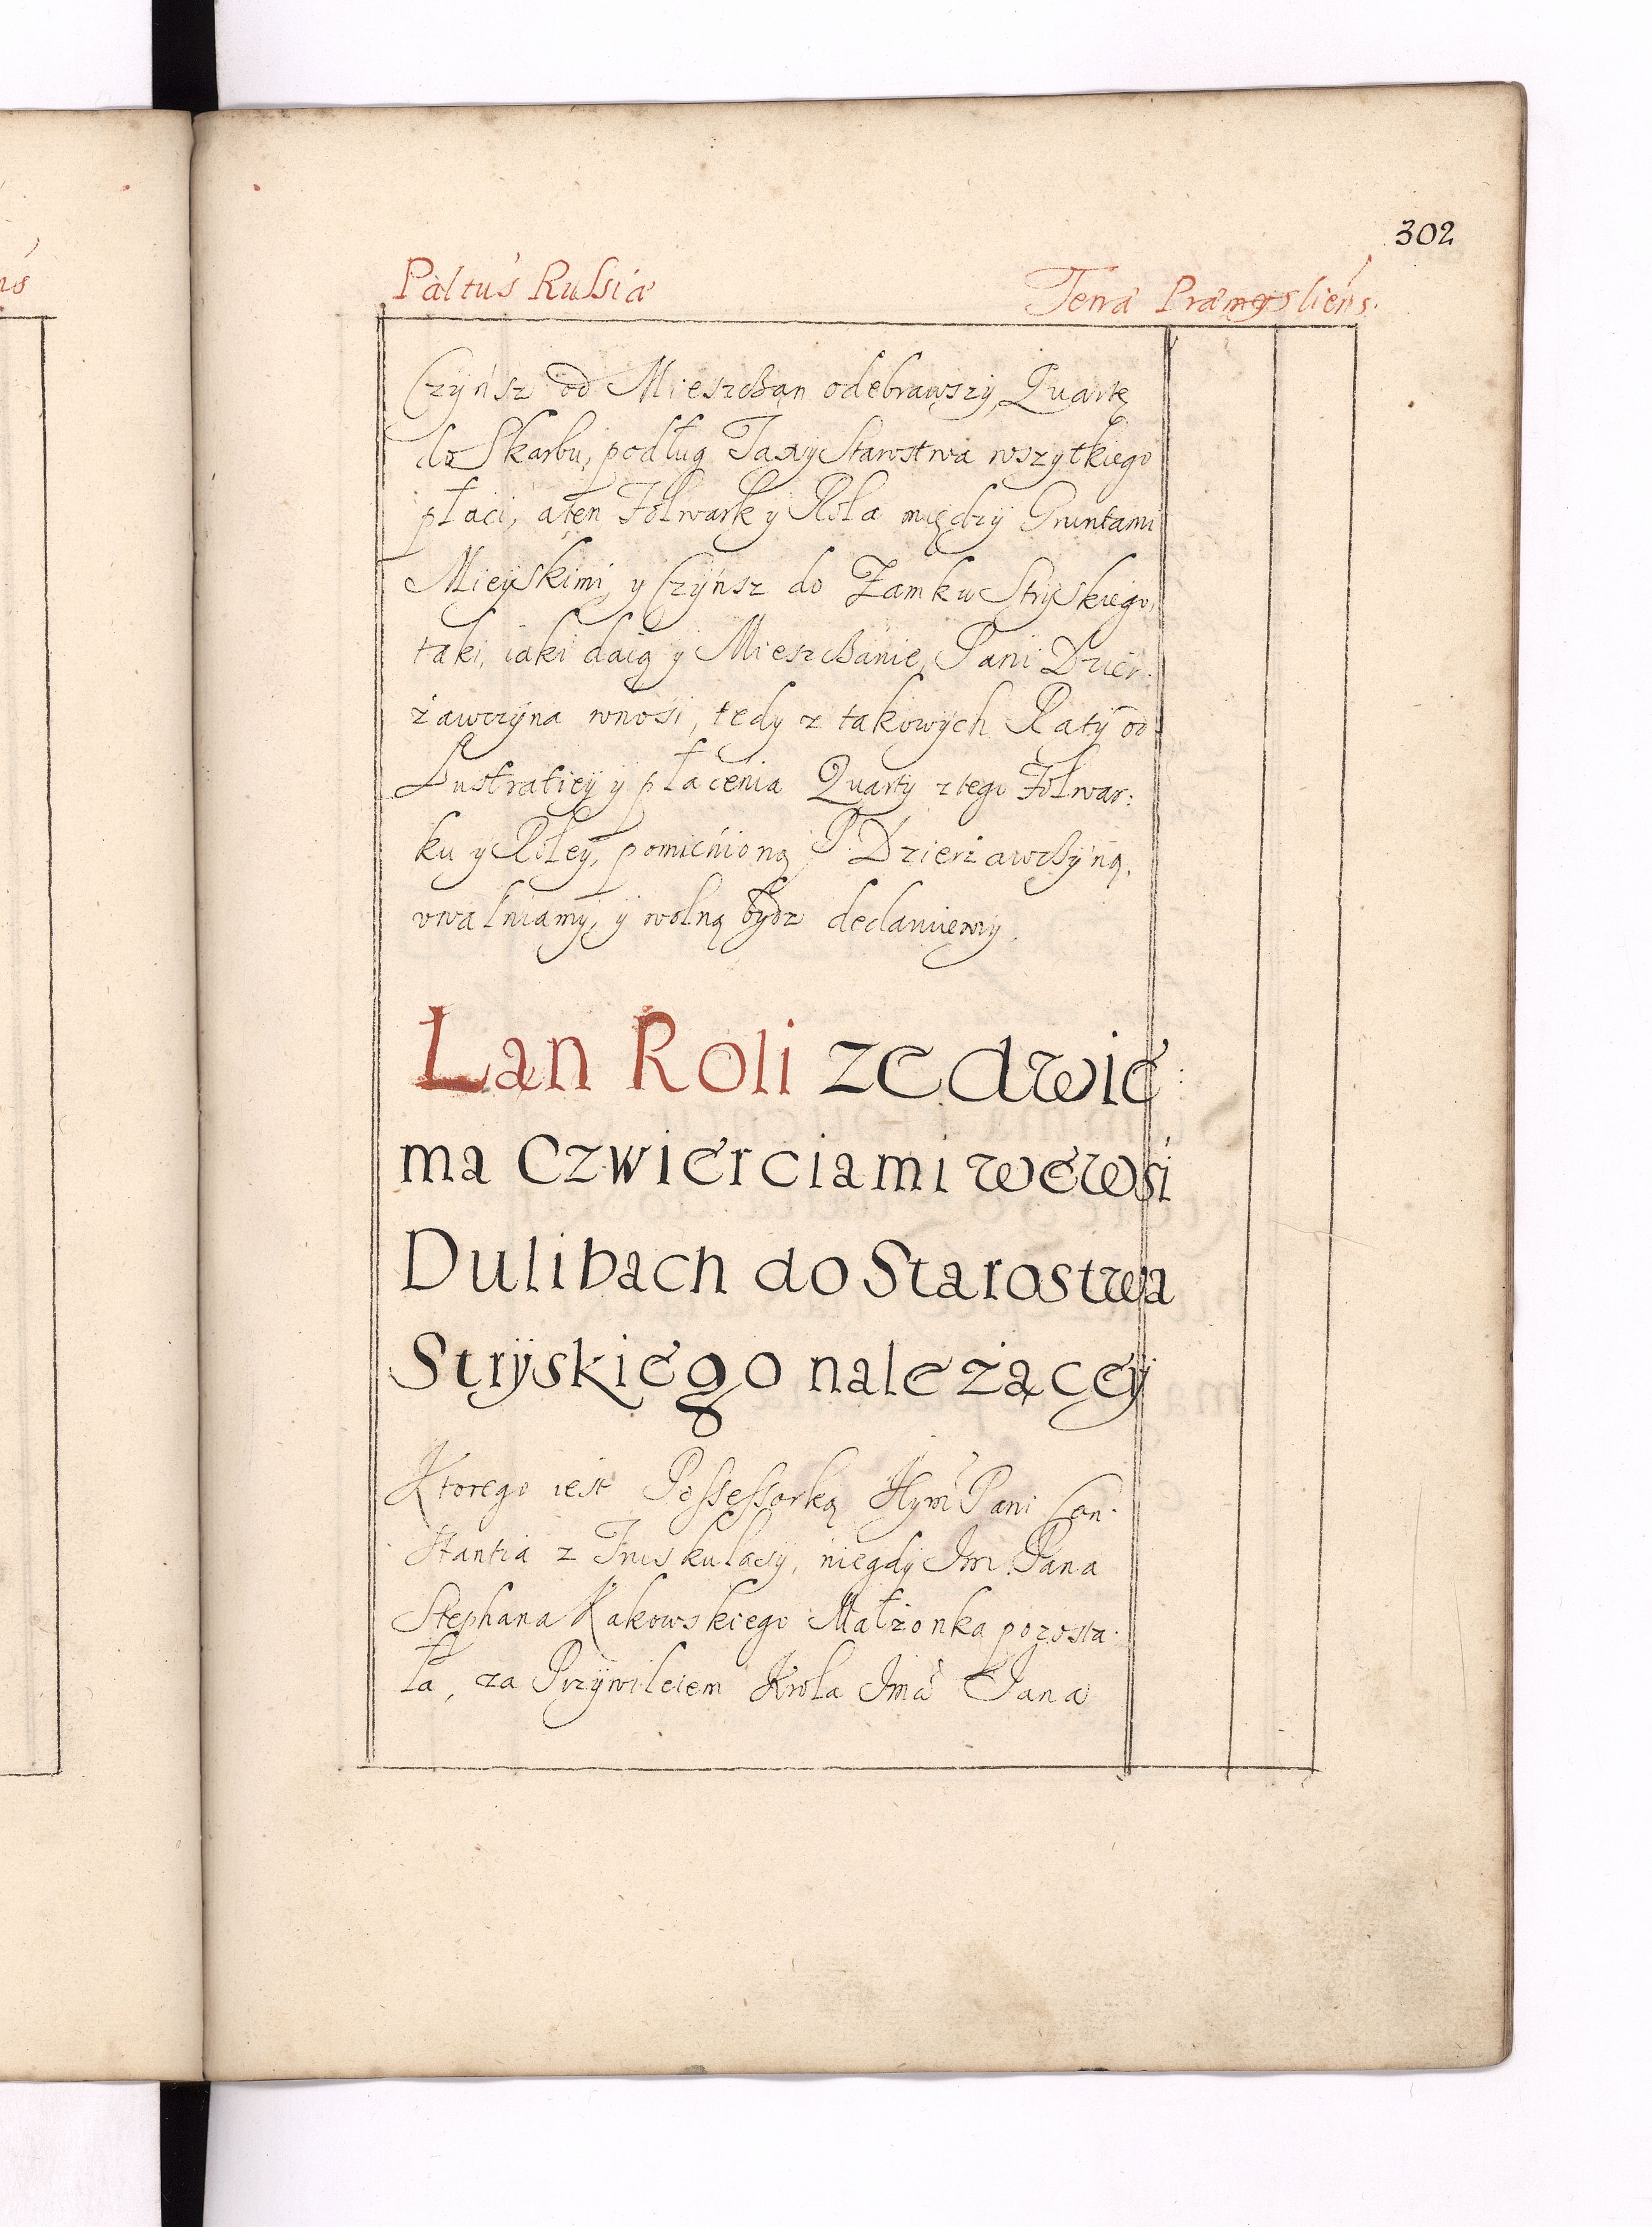 302
Paltus Russiæ Terræ Præmysliens.
Czÿnsz od Mieszczan odebrawszÿ, Quartę
do Skarbu, podług Taxÿ Starostwa wszytkiego
płaci, aten Folwark y Rola między Gruntami
Mieÿskimi, y Czÿnsz do Zamku Strÿskiego,
taki, iaki daią y Mieszczanie, Pani Dzier:
żawczÿna wnosi, tedy z takowÿch Ratÿ od
Lustratieÿ y płacenia Quartÿ z tego Folwar:
ku y Roleÿ, pomienioną P. Dzierżawczÿną,
uwalniamÿ, ÿ wolną bydz declaruiemy.
Łan Roli ze dwie:
ma Czwierciami we Wsi
Dulibach do Starostwa
Strÿskiego należąceÿ
Ktorego iest Possessorką Iÿm Pani Con:
stantia z , niegdÿ Im Pana
Stephana Rakowskiego Małżonka pozosta:
ła, za Przÿwileiem Krola Ime Jana